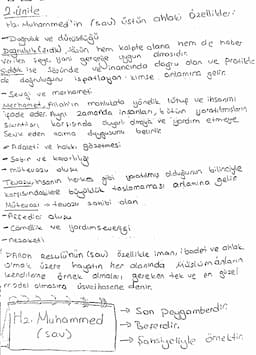 2.ünite
Hz. Muhammed'in (sav) üstün ahlaki özellikleri
- Doğruluk ve dürüstlüğü
Doğruluk (sıdk), sözün hem kalpte olana hem de haber
verilen şeye yani gerçeğe uygun olmasıdır.
Sıddık ise sözünde ve inancında doğru olan ve pratikte
de doğruluğunu ispatlayan kimse anlamına gelir.
- Sevgi ve merhameti
Merhamet, Allah'ın mahlukata yönelik lütuf ve ihsanını
ifade eder. Aynı zamanda insanları, bütün yaratılmışların
sıkıntıları karşısında duyarlı olmaya ve yardım etmeye
sevk eden acıma duygusunu belirtir
- Adaleti ve hakkı gözetmesi
- Sabrı ve kararlılığı
- mütevazı oluşu
Tevazu, insanın herkes gibi yaratılmış olduğunun bilinciyle
karşısındakilere büyüklük taslamaması anlamına gelir
Mütevazı → tevazu sahibi olan
- Affedici oluşu
- Cömertlik ve yardımseverliği
- nezaketi
resulünün (sav) özellikle iman, ibadet ve ahlak
olmak üzere hayatın her alanında müslümanların
kendilerine örnek almaları gereken tek ve en güzel
model olmasına üsveihasene denir.
Hz. Muhammed
(sav)
→ Son Peygamberdir.
→ Beşerdir.
→ Şahsiyetiyle örnektir.